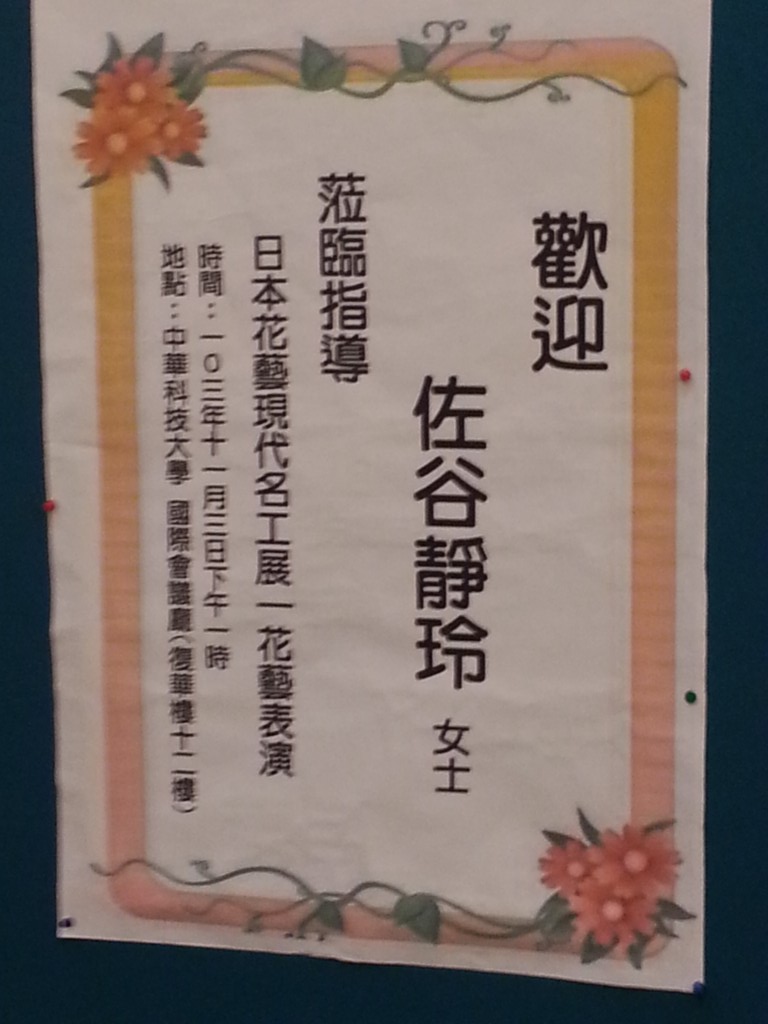 歡迎
佐谷靜玲 女士
蒞臨指導
日本花藝現代名工展—花藝表演
時間：一０三年十一月三日下午一時
地點：中華科技大學 國際會議廳（復華樓十二樓）